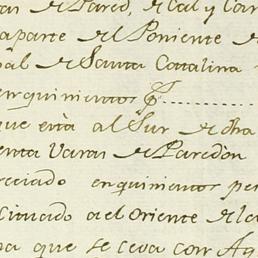 de Pared, de Cal y Can
aparte del Poniente de
al de Santa Catalina
enquinientos p.........
que está al Sur de dha
enta Varas de Paredon
reciado enquinientos pe
cituado ael Oriente de la
a que se ceva con Ag